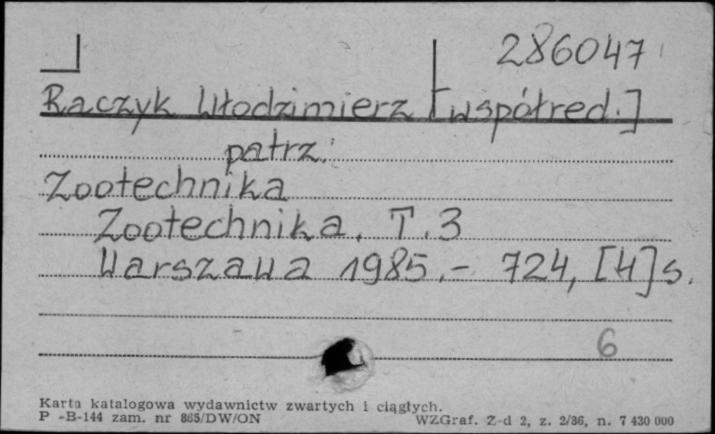 286047
Raczyk Włodzimierz [współred.]
patrz:
Zootechnika
Zootechnika. T. 3
Warszawa 1985.- 724, [4]s.
6
Karta katalogowa wydawnictw zwartych i ciągłych.
P -B-144 zam. nr 865/DW/ON WZGraf. Z-d 2, z. 2/86, n. 7 430 000